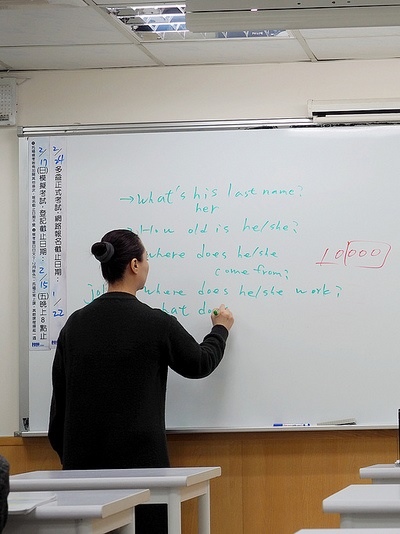 → what's his last name?
her
How old is he/she?
where does he/she
come from?
job where does he/she work?
what do
10,000
2/24 多益正式考試，網路報名截止日期： 1/22
2/17 (日) 模擬考試，登記截止日期： 2/15 (五) 晚上8點止